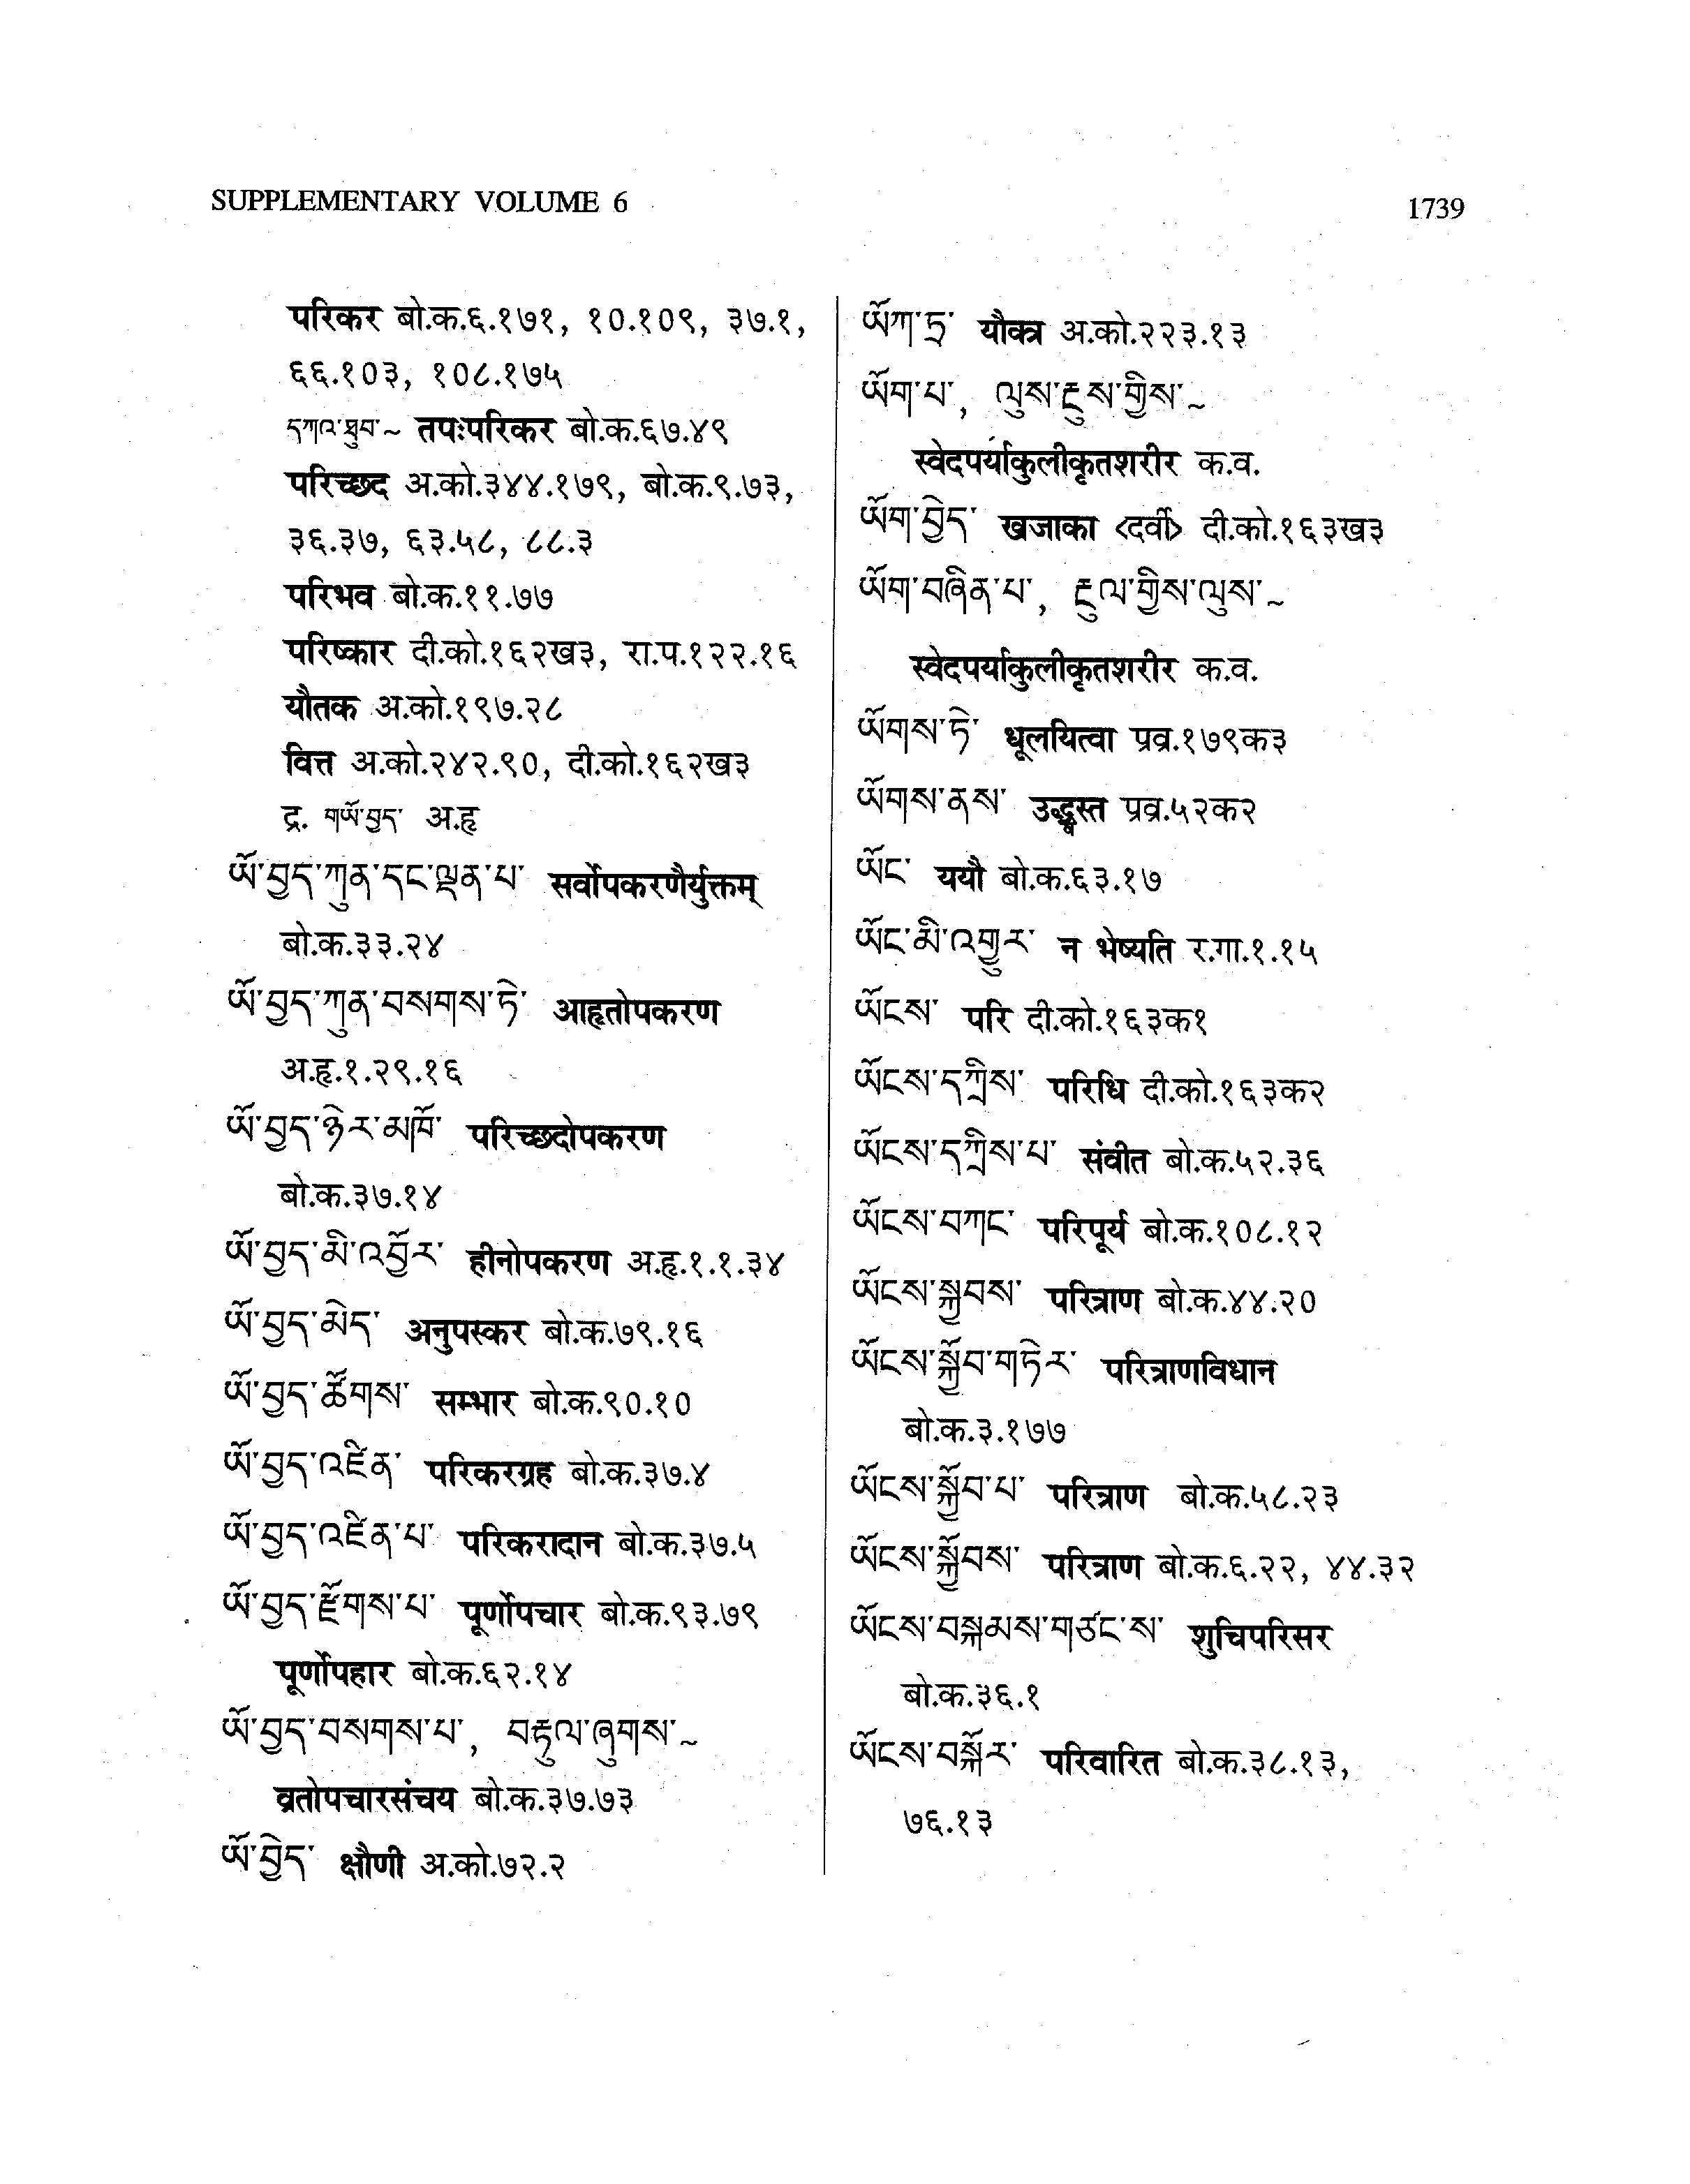 SUPPLEMENTARY VOLUME 6
1739
परिकर बो.क.६.१७१, १०.१०९, ३७.१,
६६.१०३, १०८.१७५
དཀའ་ཐུབ་~ तपःपरिकर बो.क.६७.४९
परिच्छद अ.को.३४४.१७९, बो.क.९.७३,
३६.३७, ६३.५८, ८८.३
परिभव बो.क.११.७७
परिष्कार दी.को.१६२ख३, रा.प.१२२.१६
यौतक अ.को.१९७.२८
वित्त अ.को.२४२.९०, दी.को.१६२ख३
द्र. གཡོ་བྱད་ अ.हृ
ཡོ་བྱད་ཀུན་དང་ལྡན་པ་ सर्वोपकरणैर्युक्तम्
बो.क.३३.२४
ཡོ་བྱད་ཀུན་བསགས་ཏེ་ आहृतोपकरण
अ.हृ.१.२९.१६
ཡོ་བྱད་ཉེར་མཁོ་ परिच्छदोपकरण
बो.क.३७.१४
ཡོ་བྱད་མི་འབྱོར་ हीनोपकरण अ.हृ.१.१.३४
ཡོ་བྱད་མེད་ अनुपस्कर बो.क.७९.१६
ཡོ་བྱད་ཚོགས་ सम्भार बो.क.९०.१०
ཡོ་བྱད་འཛིན་ परिकरग्रह बो.क.३७.४
ཡོ་བྱད་འཛིན་པ་ परिकरादान बो.क.३७.५
ཡོ་བྱད་རྫོགས་པ་ पूर्णोपचार बो.क.९३.७९
पूर्णोपहार बो.क.६२.१४
ཡོ་བྱད་བསགས་པ་, བརྟུལ་ཞུགས་~
व्रतोपचारसंचय बो.क.३७.७३
ཡོ་བྱེད་ क्षौणी अ.को.७२.२
ཡོཀ་ཏྲ་ यौक्त्र अ.को.२२३.१३
ཡོག་པ་, ལུས་རྔུས་གྱིས་~
स्वेदपर्याकुलीकृतशरीर क.व.
ཡོག་བྱེད་ खजाका <दर्वी> दी.को.१६३ख३
ཡོག་བཞིན་པ་, རྔུལ་གྱིས་ལུས་~
स्वेदपर्याकुलीकृतशरीर क.व.
ཡོགས་ཏེ་ धूलयित्वा प्रव्र.१७९क३
ཡོགས་ནས་ उद्ध्वस्त प्रव्र.५२क२
ཡོང་ ययौ बो.क.६३.१७
ཡོང་མི་འགྱུར་ न भेष्यति र.गा.१.१५
ཡོངས་ परि दी.को.१६३क१
ཡོངས་དཀྲིས་ परिधि दी.को.१६३क२
ཡོངས་དཀྲིས་པ་ संवीत बो.क.५२.३६
ཡོངས་བཀང་ परिपूर्य बो.क.१०८.१२
ཡོངས་སྐྱབས་ परित्राण बो.क.४४.२०
ཡོངས་སྐྱོབ་གཏེར་ परित्राणविधान
बो.क.३.१७७
ཡོངས་སྐྱོབ་པ་ परित्राण बो.क.५८.२३
ཡོངས་སྐྱོབས་ परित्राण बो.क.६.२२, ४४.३२
ཡོངས་བསྐམས་གཙང་ས་ शुचिपरिसर
बो.क.३६.१
ཡོངས་བསྐོར་ परिवारित बो.क.३८.१३,
७६.१३